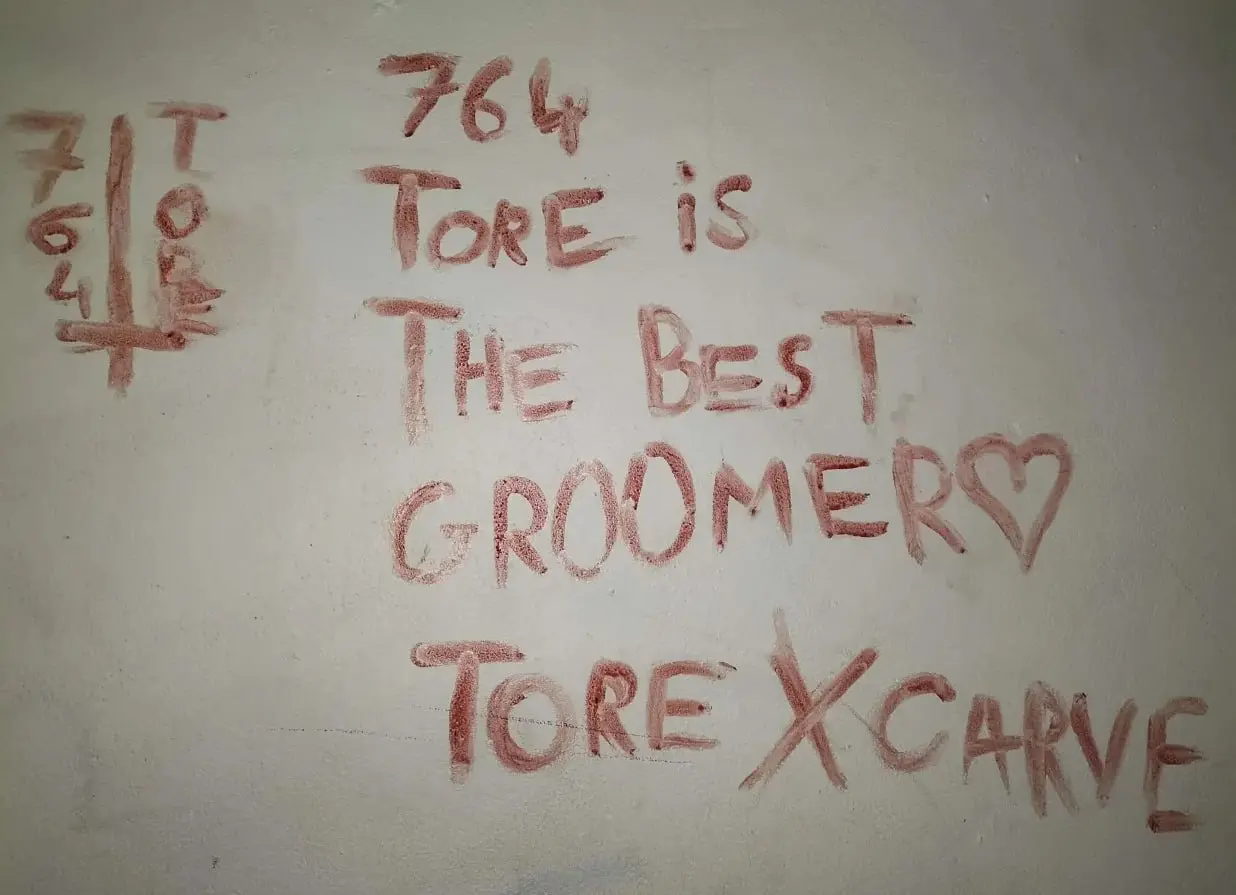 7 6 4
T O R E
764
TORE iS
THE BEST
GROOMER♡
TORE X CARVE